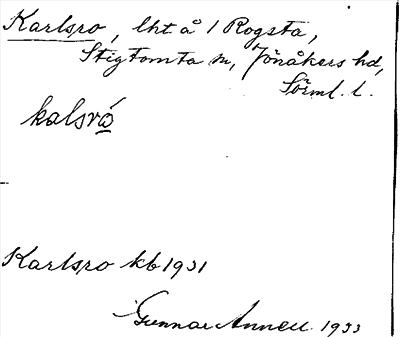 Karlsro, lht å 1 Rogsta,
Stigtomta sn, Jönåkers hd,
Sörml. l.
kalsró
Karlsro kb 1931
Gunnar Annell 1933